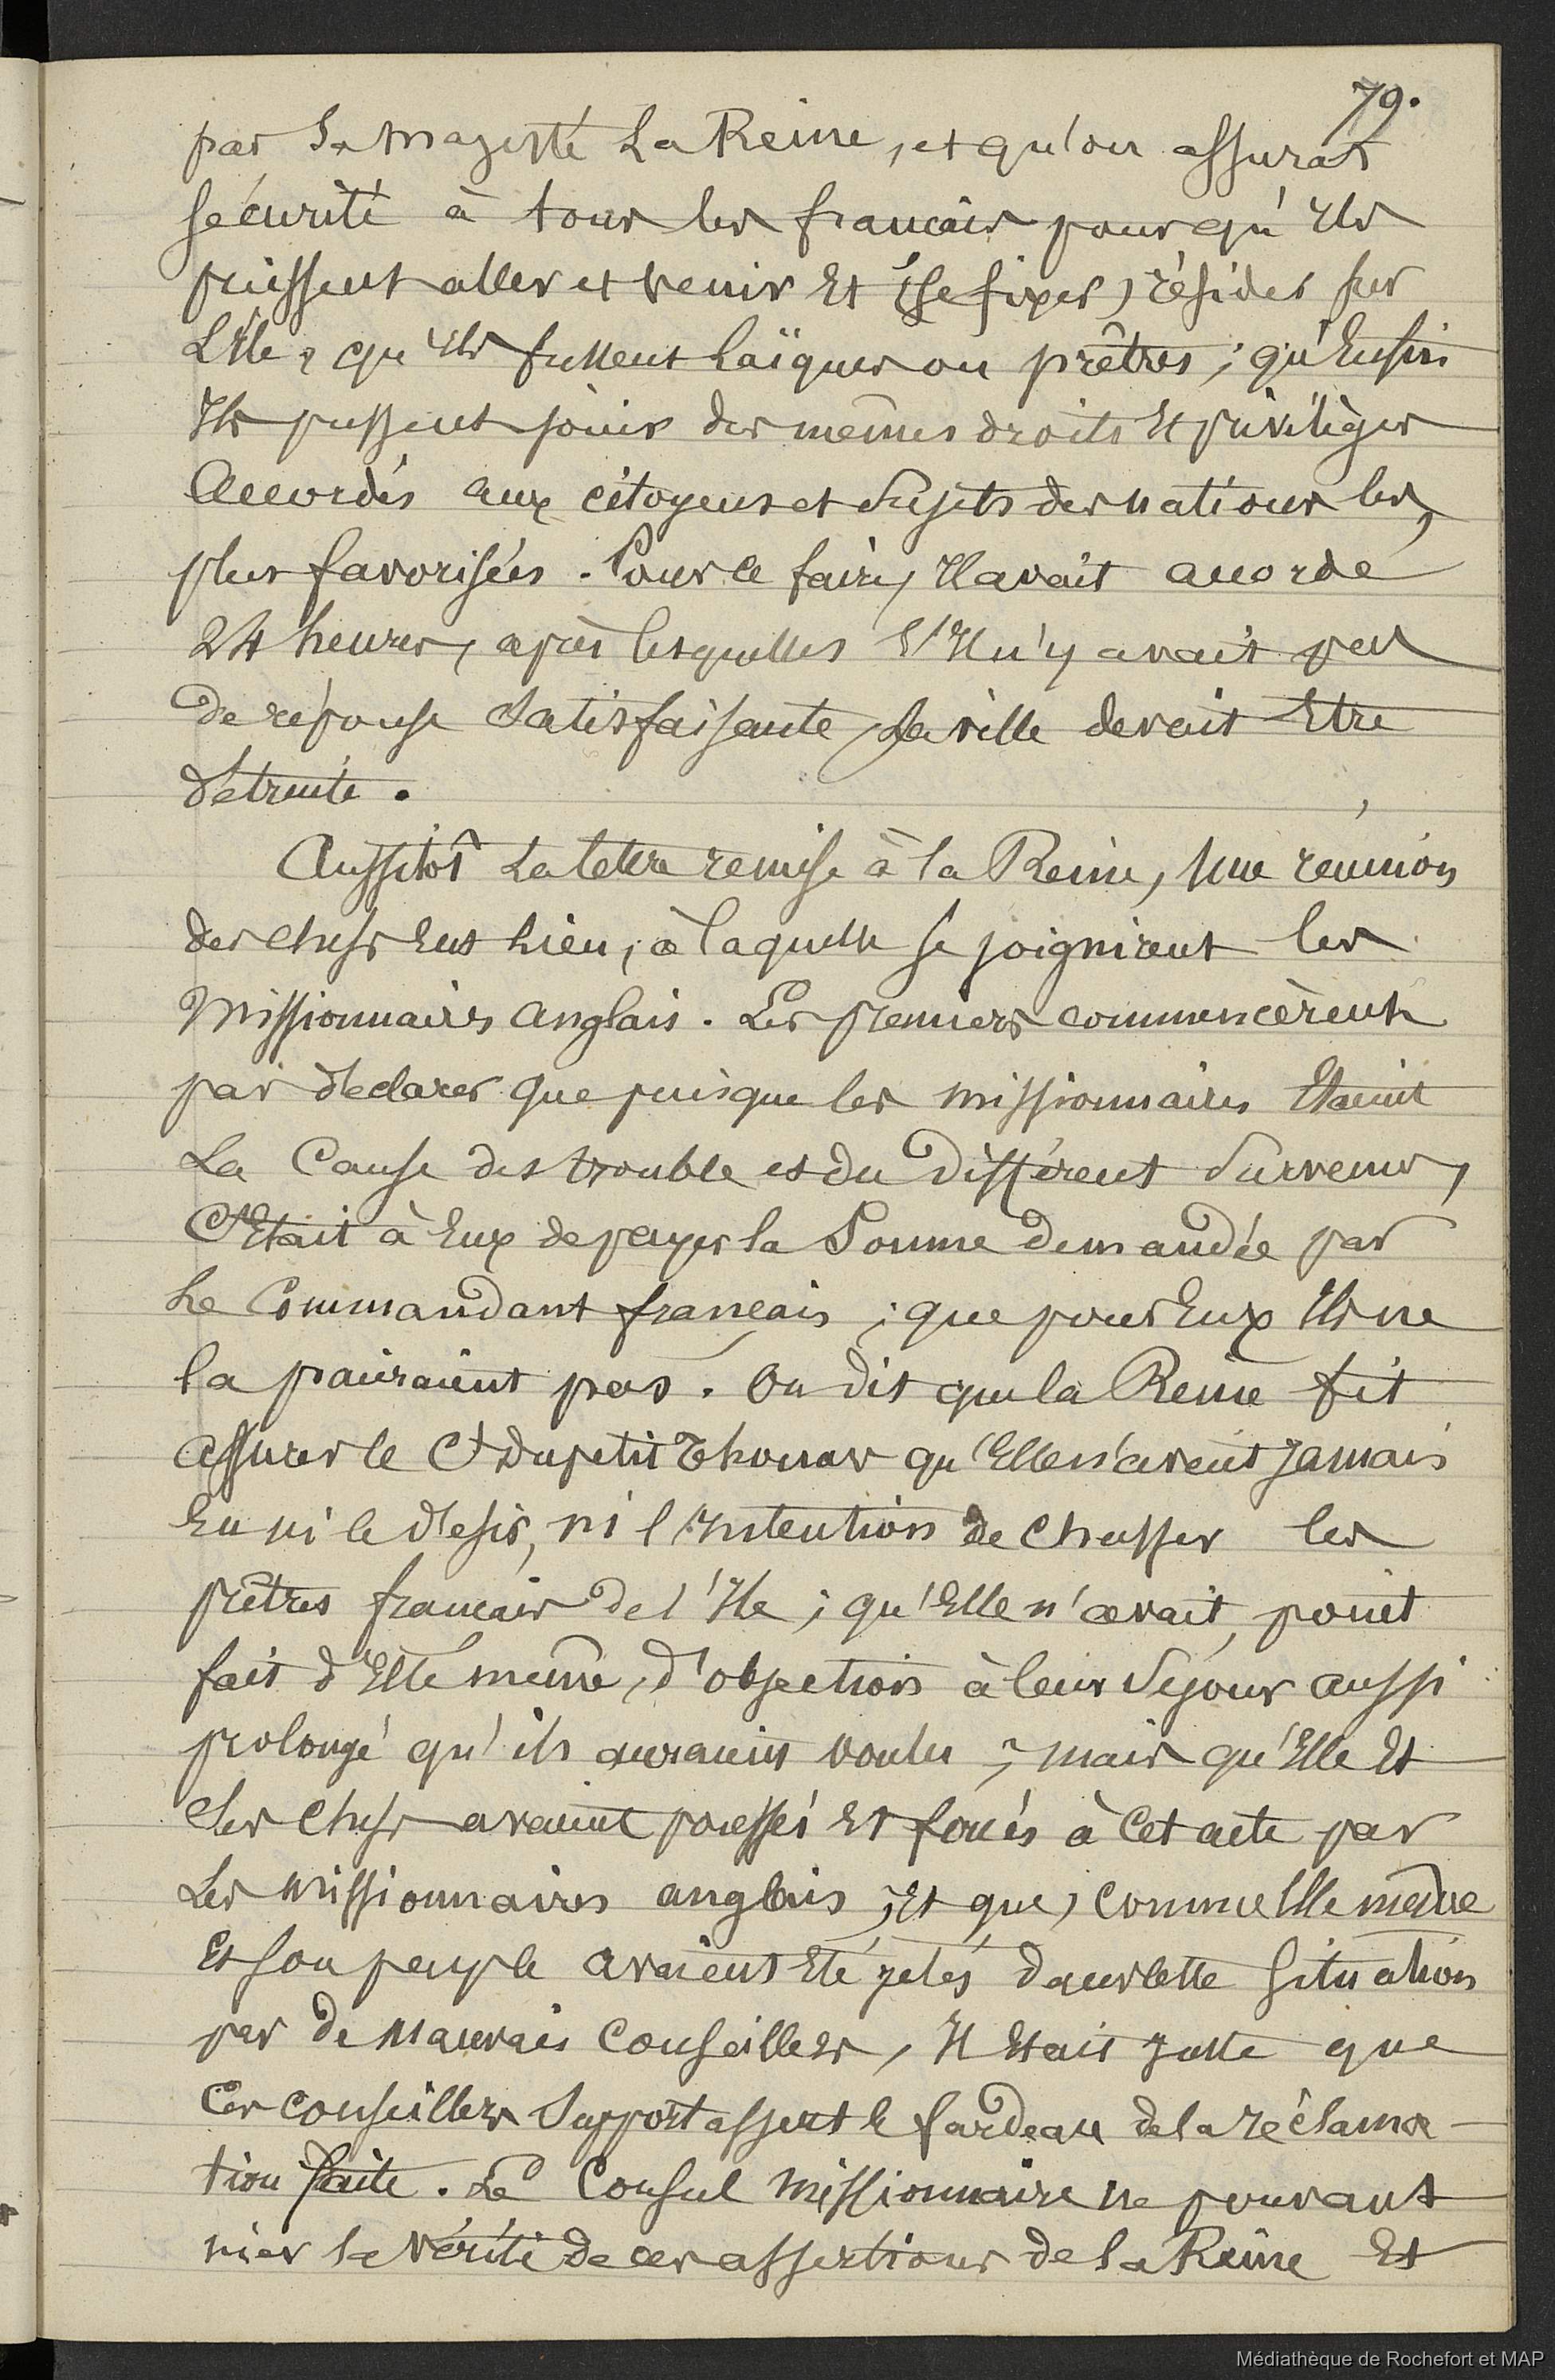 79.
par Sa Majesté La Reine, et qu'on assurat
sécurité à tous les francais pour qu'Ils
puissent aller et venir Et (se fixer) résider sur
L'Ile, qu'Ils fussent Laïques ou prêtres ; qu'Enfin
Ils pussent jouir des mêmes droits Et priviléges
Accordés aux citoyens et Sujets des nations les
plus favorisées. Pour ce faire, Il avait accordé
24 heures, après lesquelles S'Il n'y avait pas
de réponse Satisfaisante, La ville devait Etre
détruite.
Aussitôt La lettre remise à la Reine, Une réunion
des chefs Eut Lieu, à laquelle se joignirent les
Missionnaires Anglais. Les premiers commencèrent
par déclarer que puisque les missionnaires Etaient
La Cause des trouble et du Différent Survenus,
C'Etait à Eux de payer la Somme demandée par
Le Commandant français ; que pour Eux Ils ne
la pairaient pas. On dit que la Reine fit
Assurer le Ct Dupetit Thouars qu'Elle n'avait Jamais
Eu ni le désir, ni l'Intention de chasser les
prêtres francais de l'Ile ; qu'Elle n'avait point
fait d'Elle même, d'objection à leur Séjour aussi
prolongé qu'ils auraient voulu ; mais qu'Elle Et
Ses Chefs avaient poussés Et forcés à Cet acte par
Les missionnaires anglais ; Et que, comme Elle même
Et son peuple avaient Eté jetés dans cette Situation
par de Mauvais Conseillers, Il Etait Juste que
Ces conseillers Supportassent le fardeau de la réclama-
tion faite. Le Consul Missionnaire ne pouvant
nier la Vérité de ces assertions de la Reine Et
Médiathèque de Rochefort et MAP